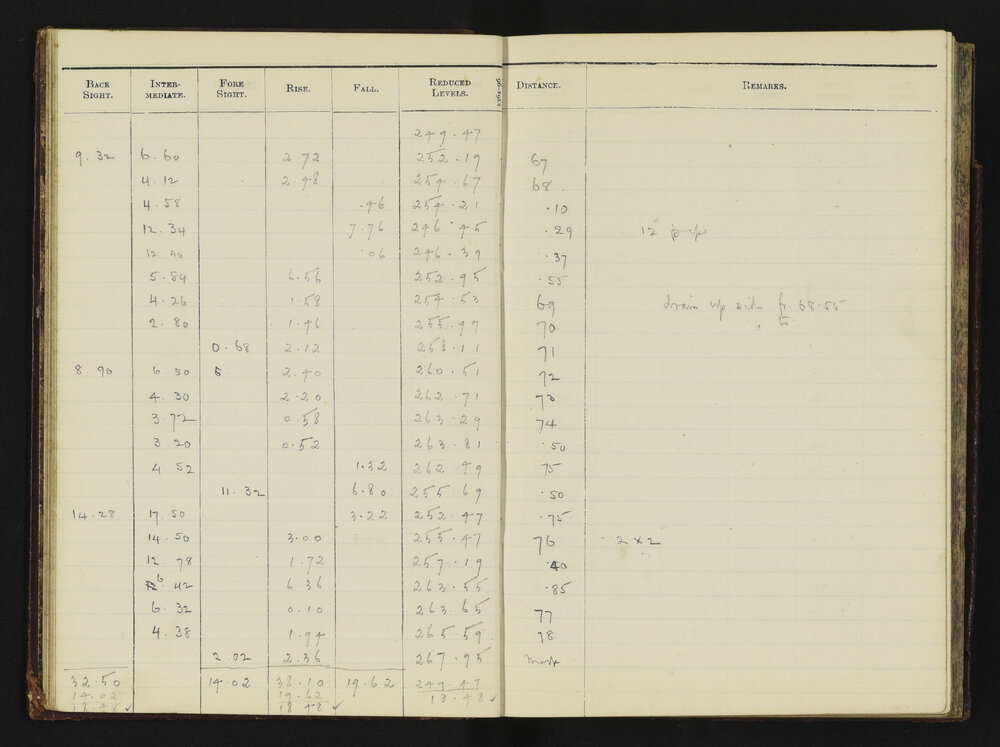 BACK SIGHT. INTER-MEDIATE. FORE SIGHT. RISE. FALL. REDUCED LEVELS. DISTANCE. REMARKS.
249.47
9.32 6.60 2.72 252.19 67
4.12 2.48 254.67 68.
4.58 .46 254.21 .10
12.34 7.76 246.45 .29 12"
12.40 .06 246.39 .37
5.84 6.56 252.95 .55
4.26 1.58 254.53 69 drain up side fr. 68.55
2.80 1.46 255.99 70 to
0.68 2.12 258.11 71
8.90 6.50 2.40 260.51 72
4.30 2.20 262.71 73
3.72 0.58 263.29 74
3.20 0.52 263.81 .50
4.52 1.32 262.49 75
11.32 6.80 255.69 .50
14.28 17.50 3.22 252.47 .75
14.50 3.00 255.47 76 2 x 2
12.78 1.72 257.19 .40
6.42 6.36 263.55 .85
6.32 0.10 263.65 77
4.38 1.94 265.59 78
2.02 2.36 267.95
32.50 14.02 38.10 19.62 249.47
14.02 19.62 18.48 ✓
18.48 ✓ 18.48 ✓